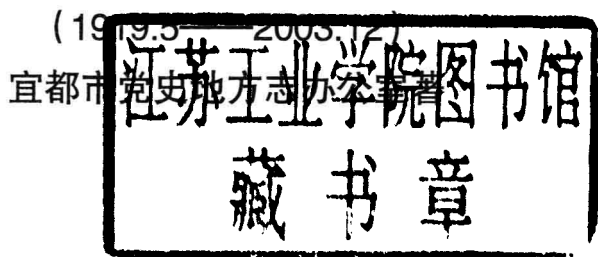 (1919.5——2003.12)
宜都市党史地方志办公室著
江苏工业学院图书馆
藏书章